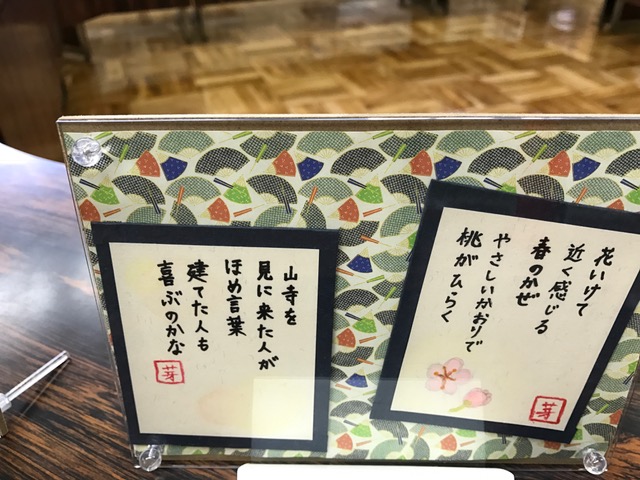 花いけて
近く感じる
春のかぜ
やさしいかおりで
桃がひらく
芽
山寺を
見に来た人が
ほめ言葉
建てた人も
喜ぶのかな
芽